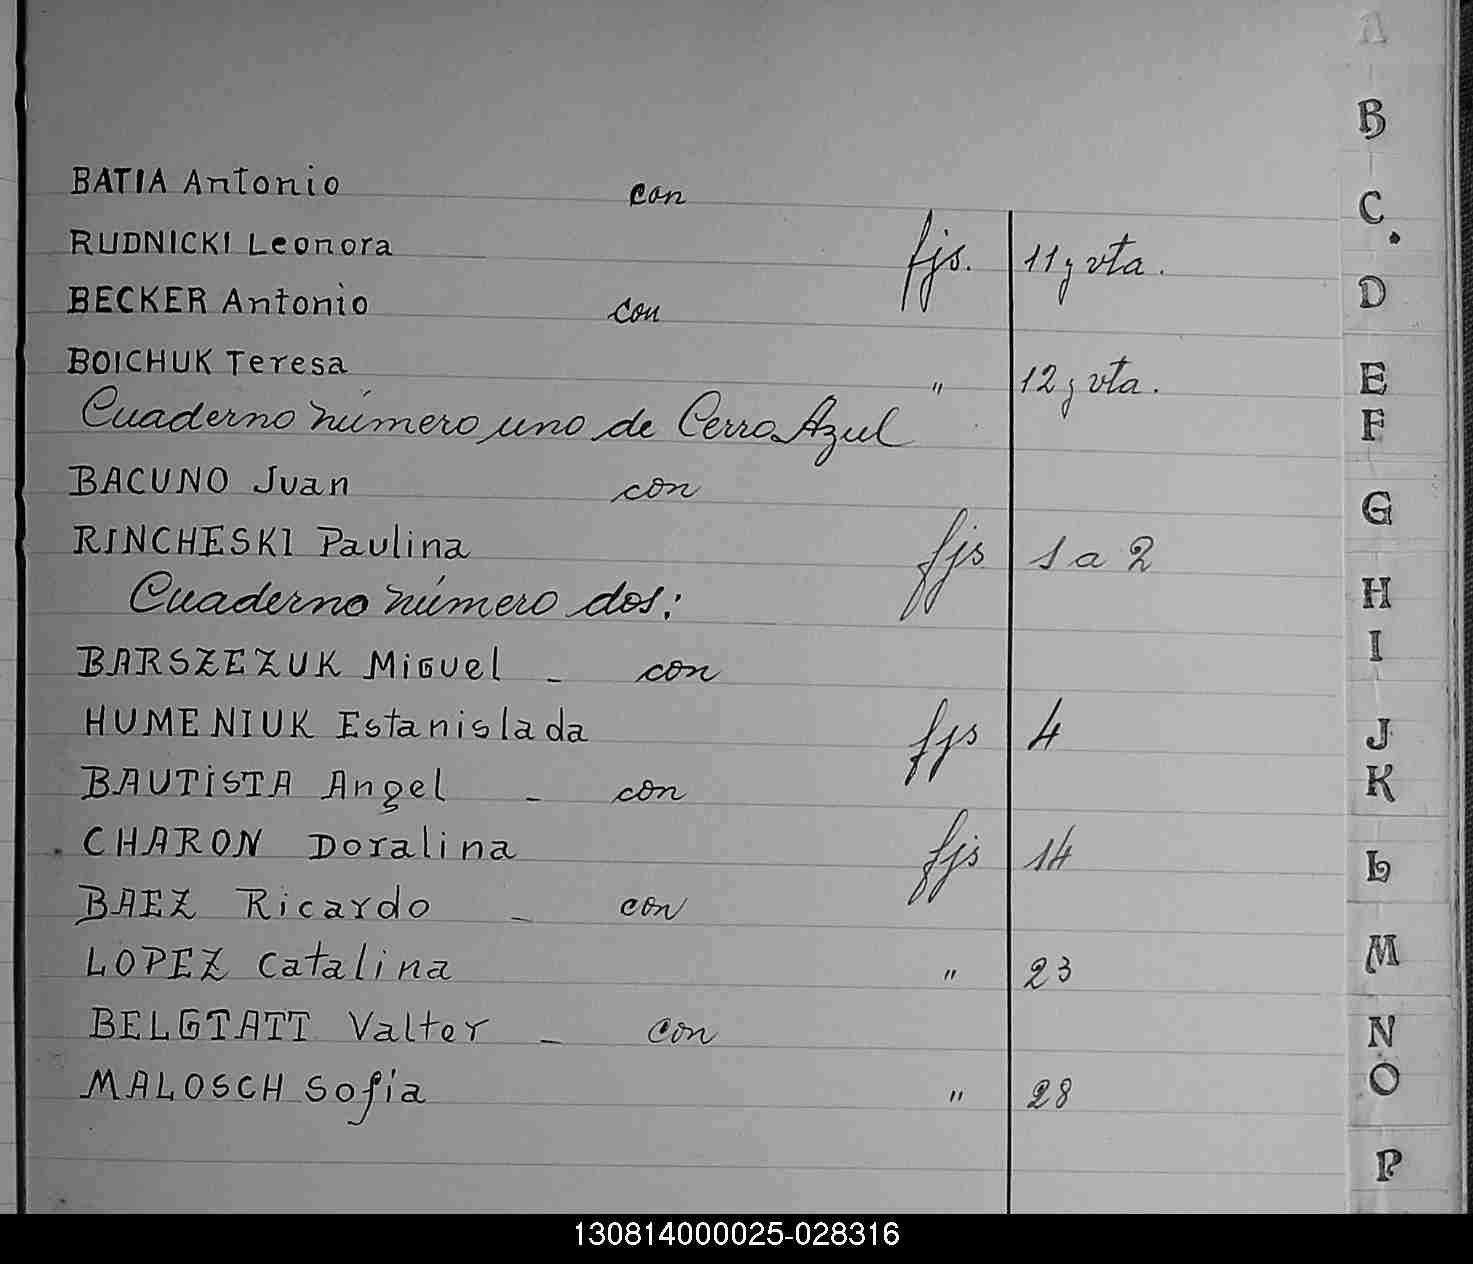 BATIA Antonio con
RUDNICKI Leonora fjs. 11 y vta.
BECKER Antonio con
BOICHUK Teresa " 12 y vta.
Cuaderno número uno de Cerro Azul
BACUNO Juan con
RINCHESKI Paulina fjs 1 a 2
Cuaderno número dos:
BARSZEZUK Miguel - con
HUMENIUK Estanislada fjs 4
BAUTISTA Angel - con
CHARON Doralina fjs 14
BAEZ Ricardo - con
LOPEZ Catalina " 23
BELGTATT Valter - con
MALOSCH Sofia " 28
A
B
C.
D
E
F
G
H
I
J
K
L
M
N
O
P
130814000025-028316